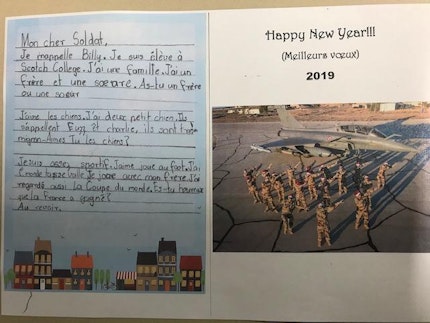 Mon cher Soldat,
Je mappelle Billy. Je suis élève à
Scotch College. J'ai une famille. J'ai un
frère et une soeure. As-tu un frère
ou une soeur
J'aime les chiens. J'ai deux petit chien. Ils
s'appellent et charlie, ils sont très
mignon. Aimes Tu les chiens?
Je suis assez sportif. J'aime joue au foot. J'ai
Je joue avec mon frère. J'ai
regardé aussi La Coupe du monde. Es-tu heureux
que la France a gagnée?
Au revoir,
Happy New Year!!!
(Meilleurs vœux)
2019